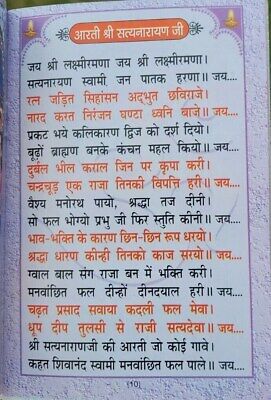 आरती श्री सत्यनारायण जी
जय श्री लक्ष्मीरमणा जय श्री लक्ष्मीरमणा।
सत्यनारायण स्वामी जन पातक हरणा।। जय....
रत्न जड़ित सिंहांसन अद्भुत छविराजे।
नारद करत निरंजन घण्टा ध्वनि बाजे।। जय....
प्रकट भये कलिकारण द्विज को दर्श दियो।
बूढ़ों ब्राह्मण बनके कंचन महल कियो।। जय....
दुर्बल भील कराल जिन पर कृपा करी।
चन्द्रचूड़ एक राजा तिनकी विपत्ति हरी।। जय....
वैश्य मनोरथ पायों, श्रद्धा तज दीनी।
सो फल भोग्यो प्रभु जी फिर स्तुति कीनी।। जय....
भाव-भक्ति के कारण छिन-छिन रूप धरयो।
श्रद्धा धारण कीन्ही तिनको काज सरयो।। जय....
ग्वाल बाल संग राजा बन में भक्ति करी।
मनवांछित फल दीन्हों दीनदयाल हरी।। जय....
चढ़त प्रसाद सवाया कदली फल मेवा।
धूप दीप तुलसी से राजी सत्यदेवा।। जय....
श्री सत्यनाराणजी की आरती जो कोई गावे।
कहत शिवानंद स्वामी मनवांछित फल पाले।। जय....
(10)